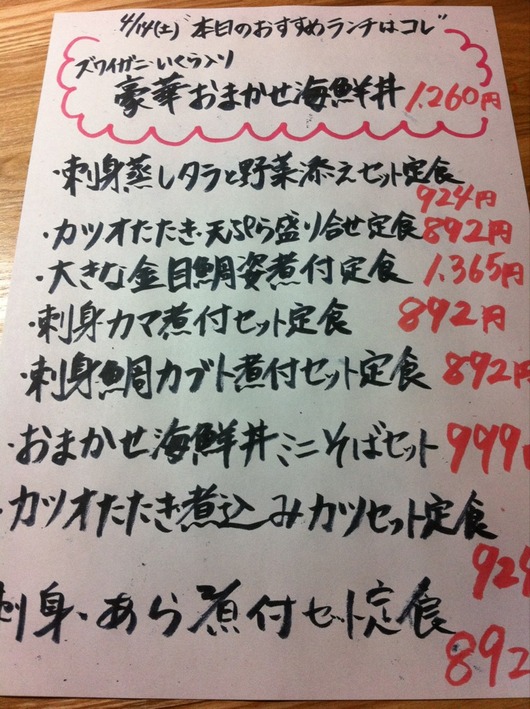 4/14(土)"本日のおすすめランチはコレ"
ズワイガニ・いくら入り
豪華おまかせ海鮮丼 1.260円
・刺身蒸しタラと野菜添えセット定食
924円
・カツオたたき・天ぷら盛り合せ定食 892円
・大きな金目鯛姿煮付定食 1.365円
・刺身カマ煮付セット定食 892円
・刺身鯛カブト煮付セット定食 892円
・おまかせ海鮮丼ミニそばセット 999円
・カツオたたき煮込みカツセット定食
924
刺身・あら煮付セット定食
892